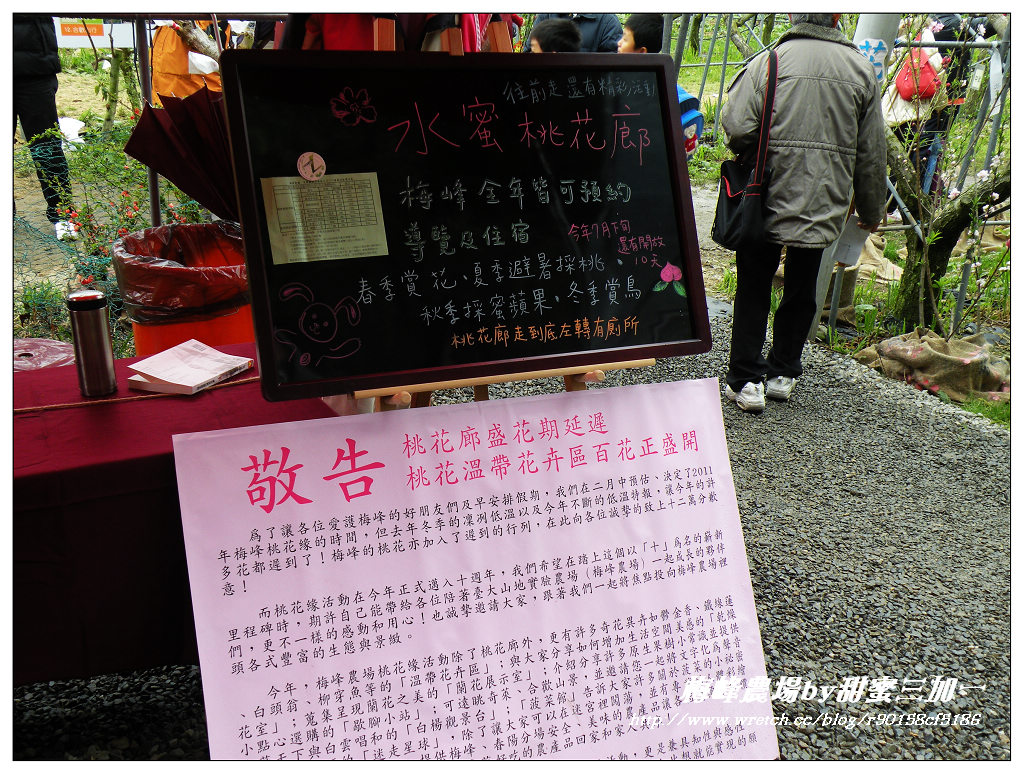 往前走還有精彩活動
水蜜桃花廊
梅峰全年皆可預約
導覽及住宿
今年7月下旬
還有開放
10天
春季賞花、夏季避暑採桃、
秋季採蜜蘋果、冬季賞鳥
桃花廊走到底左轉有廁所
敬告
桃花廊盛花期延遲
桃花溫帶花卉區百花正盛開
為了讓各位愛護梅峰的好朋友們及早安排假期，我們在二月中預估、決定了2011
年梅峰桃花緣的時間，但去年冬季的凜冽低溫以及今年不斷的低溫特報，讓今年的許
多花都遲到了！梅峰的桃花亦加入了遲到的行列，在此向各位誠摯的致上十二萬分歉
意！
而桃花緣活動在今年正式邁入十週年，我們希望在踏上這個以「十」為名的嶄新
里程碑時，期許自己能帶給各位陪著臺大山地實驗農場（梅峰農場）一起成長的夥伴
們，更不一樣的感動和用心！也誠摯邀請大家，跟著我們一起將焦點投向梅峰農場裡
頭各式豐富的生態與景緻。
今年，梅峰農場桃花緣活動除了桃花廊外，更有許多奇花異卉如鬱金香、鐵線蓮
、白頭翁、柳穿魚等的「溫帶花卉區」；與大家分享如何增加生活空間美感的「乾燥
花室」；蒐集呈現蘭花之美的「蘭花展示室」；介紹分享許多原生果樹小常識並提供
小點心選購的「歇腳小站」；可遠眺奇萊、合歡山景，並邀請您一起將文字化為聲音
與白雲唱和的「白楊觀景台」；「菠菜館」告訴大家許多關於菠菜的小祕密
「迷走星球」，除了讓大家可以在迷宮裡闖蕩，並有
提供梅峰、春陽分場安全、美味的農產品讓
的農產品回家和家人
活動，更是兼具知性與感性
梅峰農場by甜蜜三加一
http://www.wretch.cc/blog/r90158cf8186